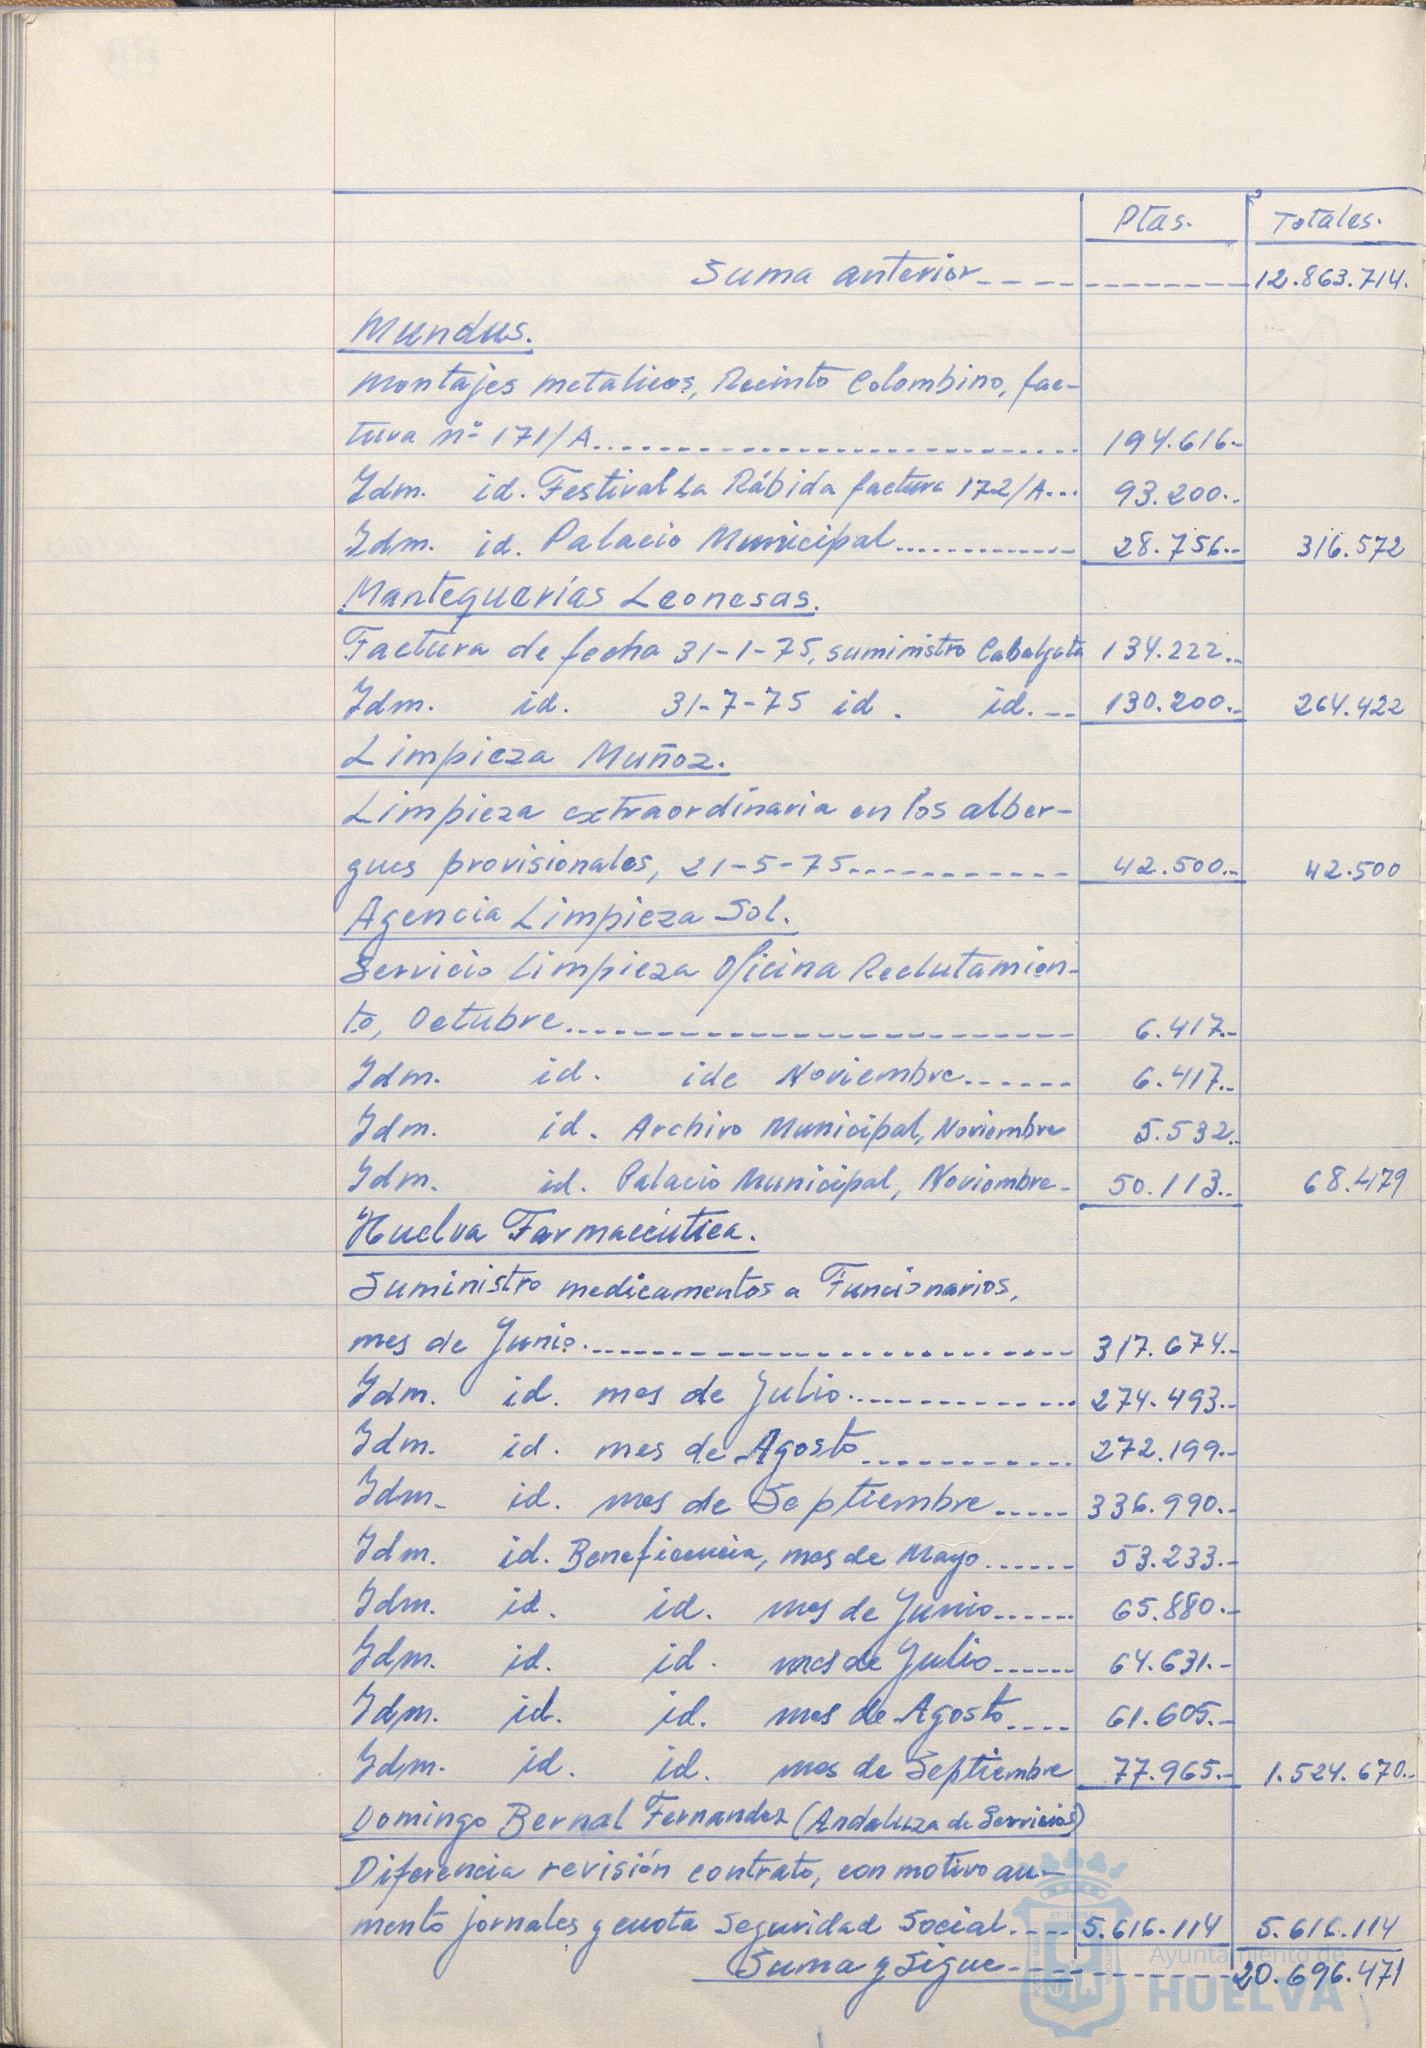 Ptas. Totales.
Suma anterior 12.863.714.
Mundus.
Montajes metalicos, Recinto Colombino, fac-
tura nº 171/A 194.616.-
Idm. id. Festival La Rábida factura 172/A 93.200.-
Idm. id. Palacio Municipal 28.756.- 316.572
Mantequerías Leonesas.
Factura de fecha 31-1-75, suministro Cabalgata 134.222.-
Idm. id. 31-7-75 id. id. 130.200.- 264.422
Limpieza Muñoz.
Limpieza extraordinaria en los alber-
gues provisionales, 21-5-75 42.500.- 42.500
Agencia Limpieza Sol.
Servicio limpieza Oficina Reclutamien-
to, Octubre 6.417.-
Idm. id. ide Noviembre 6.417.-
Idm. id. Archivo Municipal, Noviembre 5.532.-
Idm. id. Palacio Municipal, Noviembre 50.113.- 68.479
Huelva Farmacéutica.
Suministro medicamentos a Funcionarios,
mes de Junio 317.674.-
Idm. id. mes de Julio 274.493.-
Idm. id. mes de Agosto 272.199.-
Idm. id. mes de Septiembre 336.990.-
Idm. id. Beneficencia, mes de Mayo 53.233.-
Idm. id. id. mes de Junio 65.880.-
Idm. id. id. mes de Julio 64.631.-
Idm. id. id. mes de Agosto 61.605.-
Idm. id. id. mes de Septiembre 77.965.- 1.524.670.-
Domingo Bernal Fernandez (Andaluza de Servicios)
Diferencia revisión contrato, con motivo au-
mento jornales y cuota Seguridad Social 5.616.114 5.616.114
Suma y sigue 20.696.471
Ayuntamiento de
HUELVA